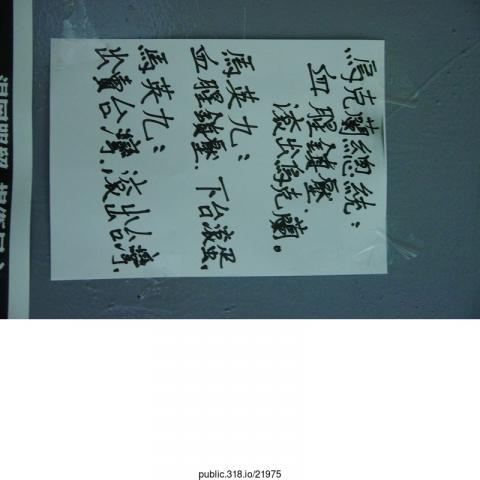 烏克蘭總統:
血腥鎮壓.
滾出烏克蘭。
馬英九:
血腥鎮壓.下台滾蛋.
馬英九:
出賣台灣.滾出台灣.
public.318.io/21975